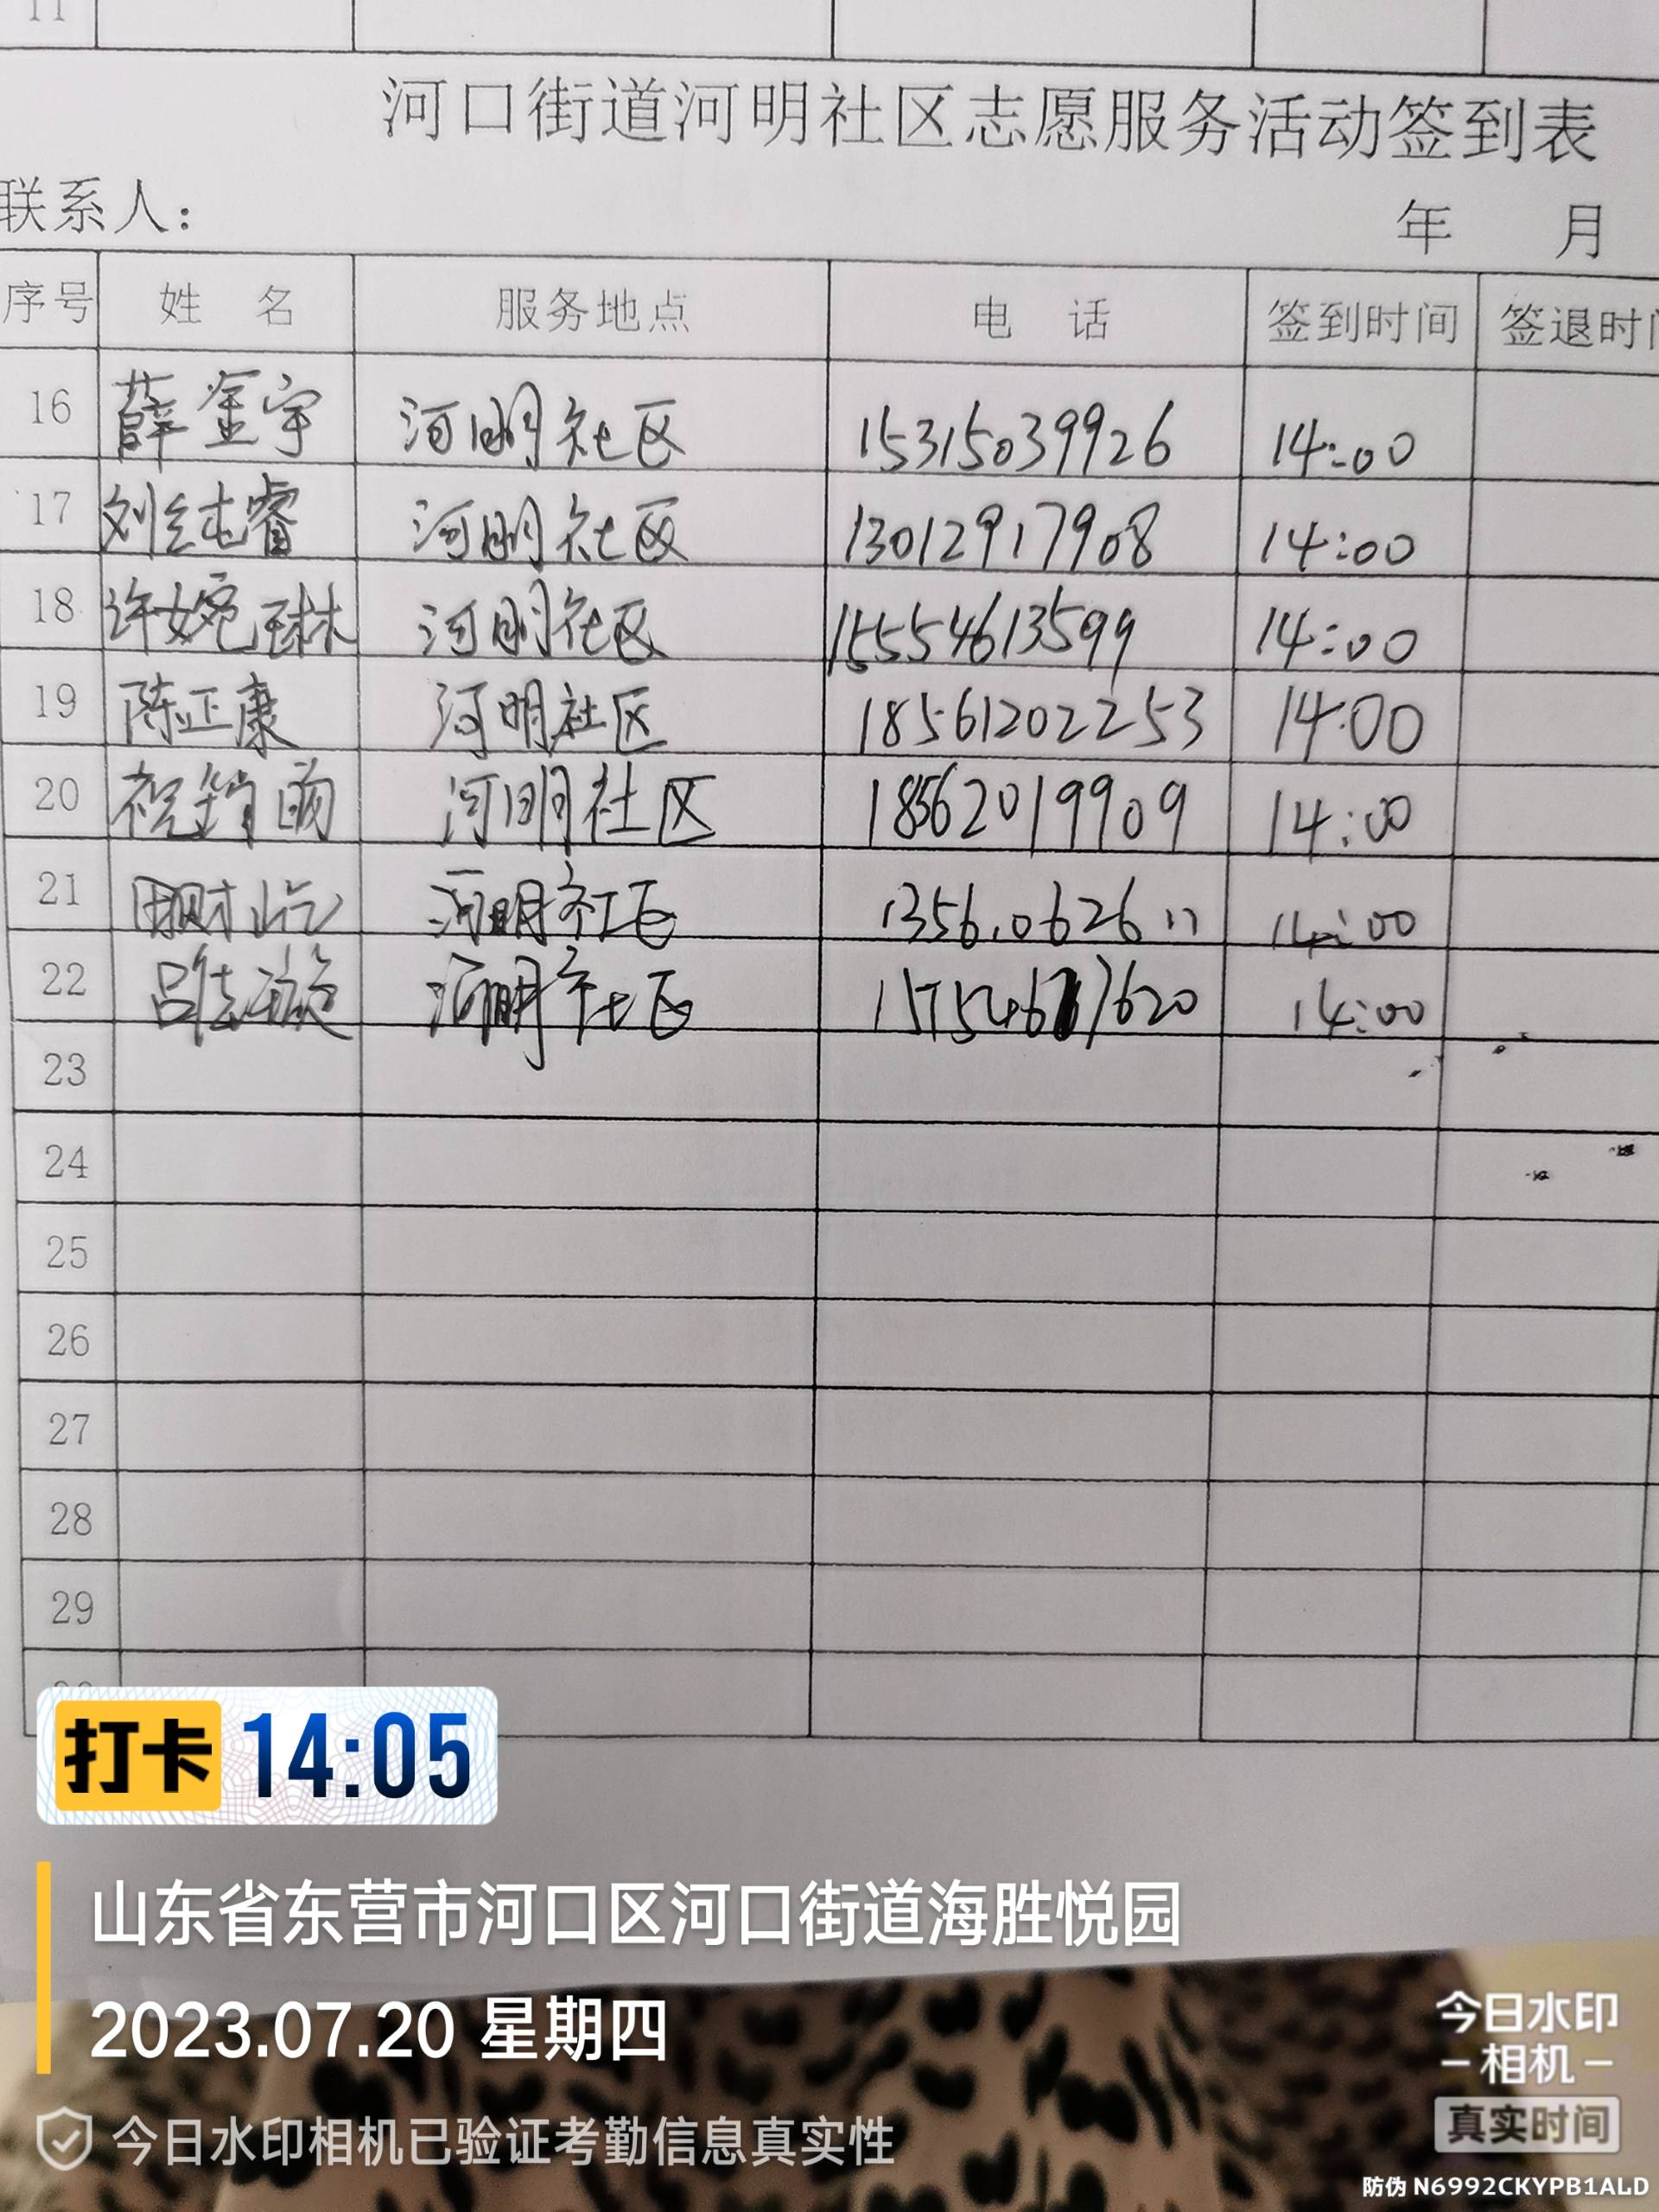 11
河口街道河明社区志愿服务活动签到表
联系人： 年 月
序号 姓 名 服务地点 电 话 签到时间 签退时间
16 薛金宇 河明社区 15315039926 14:00
17 刘纯睿 河明社区 13012917908 14:00
18 许婉琳 河明社区 15554613599 14:00
19 陈正康 河明社区 18561202253 14:00
20 河明社区 18562019909 14:00
21 河明社区 14:00
22 河明社区 14:00
23
24
25
26
27
28
29
打卡 14:05
山东省东营市河口区河口街道海胜悦园
2023.07.20 星期四
今日水印相机已验证考勤信息真实性
今日水印
-相机-
真实时间
防伪 N6992CKYPB1ALD